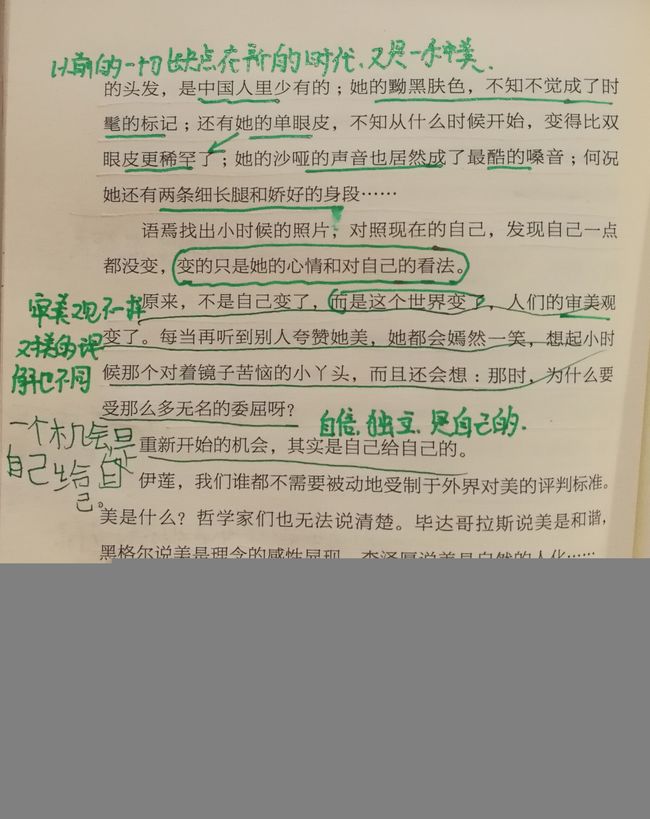 以前的一切缺点在新的时代,又是一个审美.
的头发，是中国人里少有的；她的黝黑肤色，不知不觉成了时
髦的标记；还有她的单眼皮，不知从什么时候开始，变得比双
眼皮更稀罕了；她的沙哑的声音也居然成了最酷的嗓音；何况
她还有两条细长腿和娇好的身段……
语焉找出小时候的照片，对照现在的自己，发现自己一点
都没变，变的只是她的心情和对自己的看法。
原来，不是自己变了，而是这个世界变了，人们的审美观
变了。每当再听到别人夸赞她美，她都会嫣然一笑，想起小时
候那个对着镜子苦恼的小丫头，而且还会想：那时，为什么要
受那么多无名的委屈呀？
审美观不一样
对美的理
解也不同
自信.独立.是自己的.
重新开始的机会，其实是自己给自己的。
一个机会是
自己给自
己。
伊莲，我们谁都不需要被动地受制于外界对美的评判标准。
美是什么？哲学家们也无法说清楚。毕达哥拉斯说美是和谐，
黑格尔说美是理念的感性显现，李泽厚说美是自然的人化……